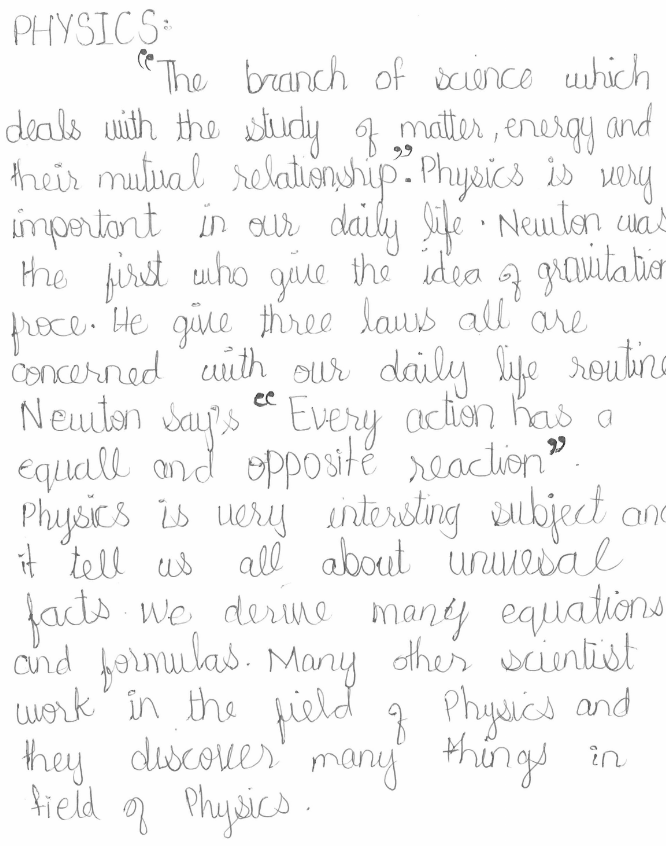 PHYSICS:
“The branch of science which
deals with the study of matter, energy and
their mutual relationship”. Physics is very
important in our daily life. Newton was
the first who give the idea of gravitation
froce. He give three laws all are
concerned with our daily life routine
Newton say's “Every action has a
equall and opposite reaction”.
Physics is very intersting subject and
it tell us all about univesal
facts. We derive many equations
and formulas. Many other scientist
work in the field of Physics and
they discover many things in
field of Physics.